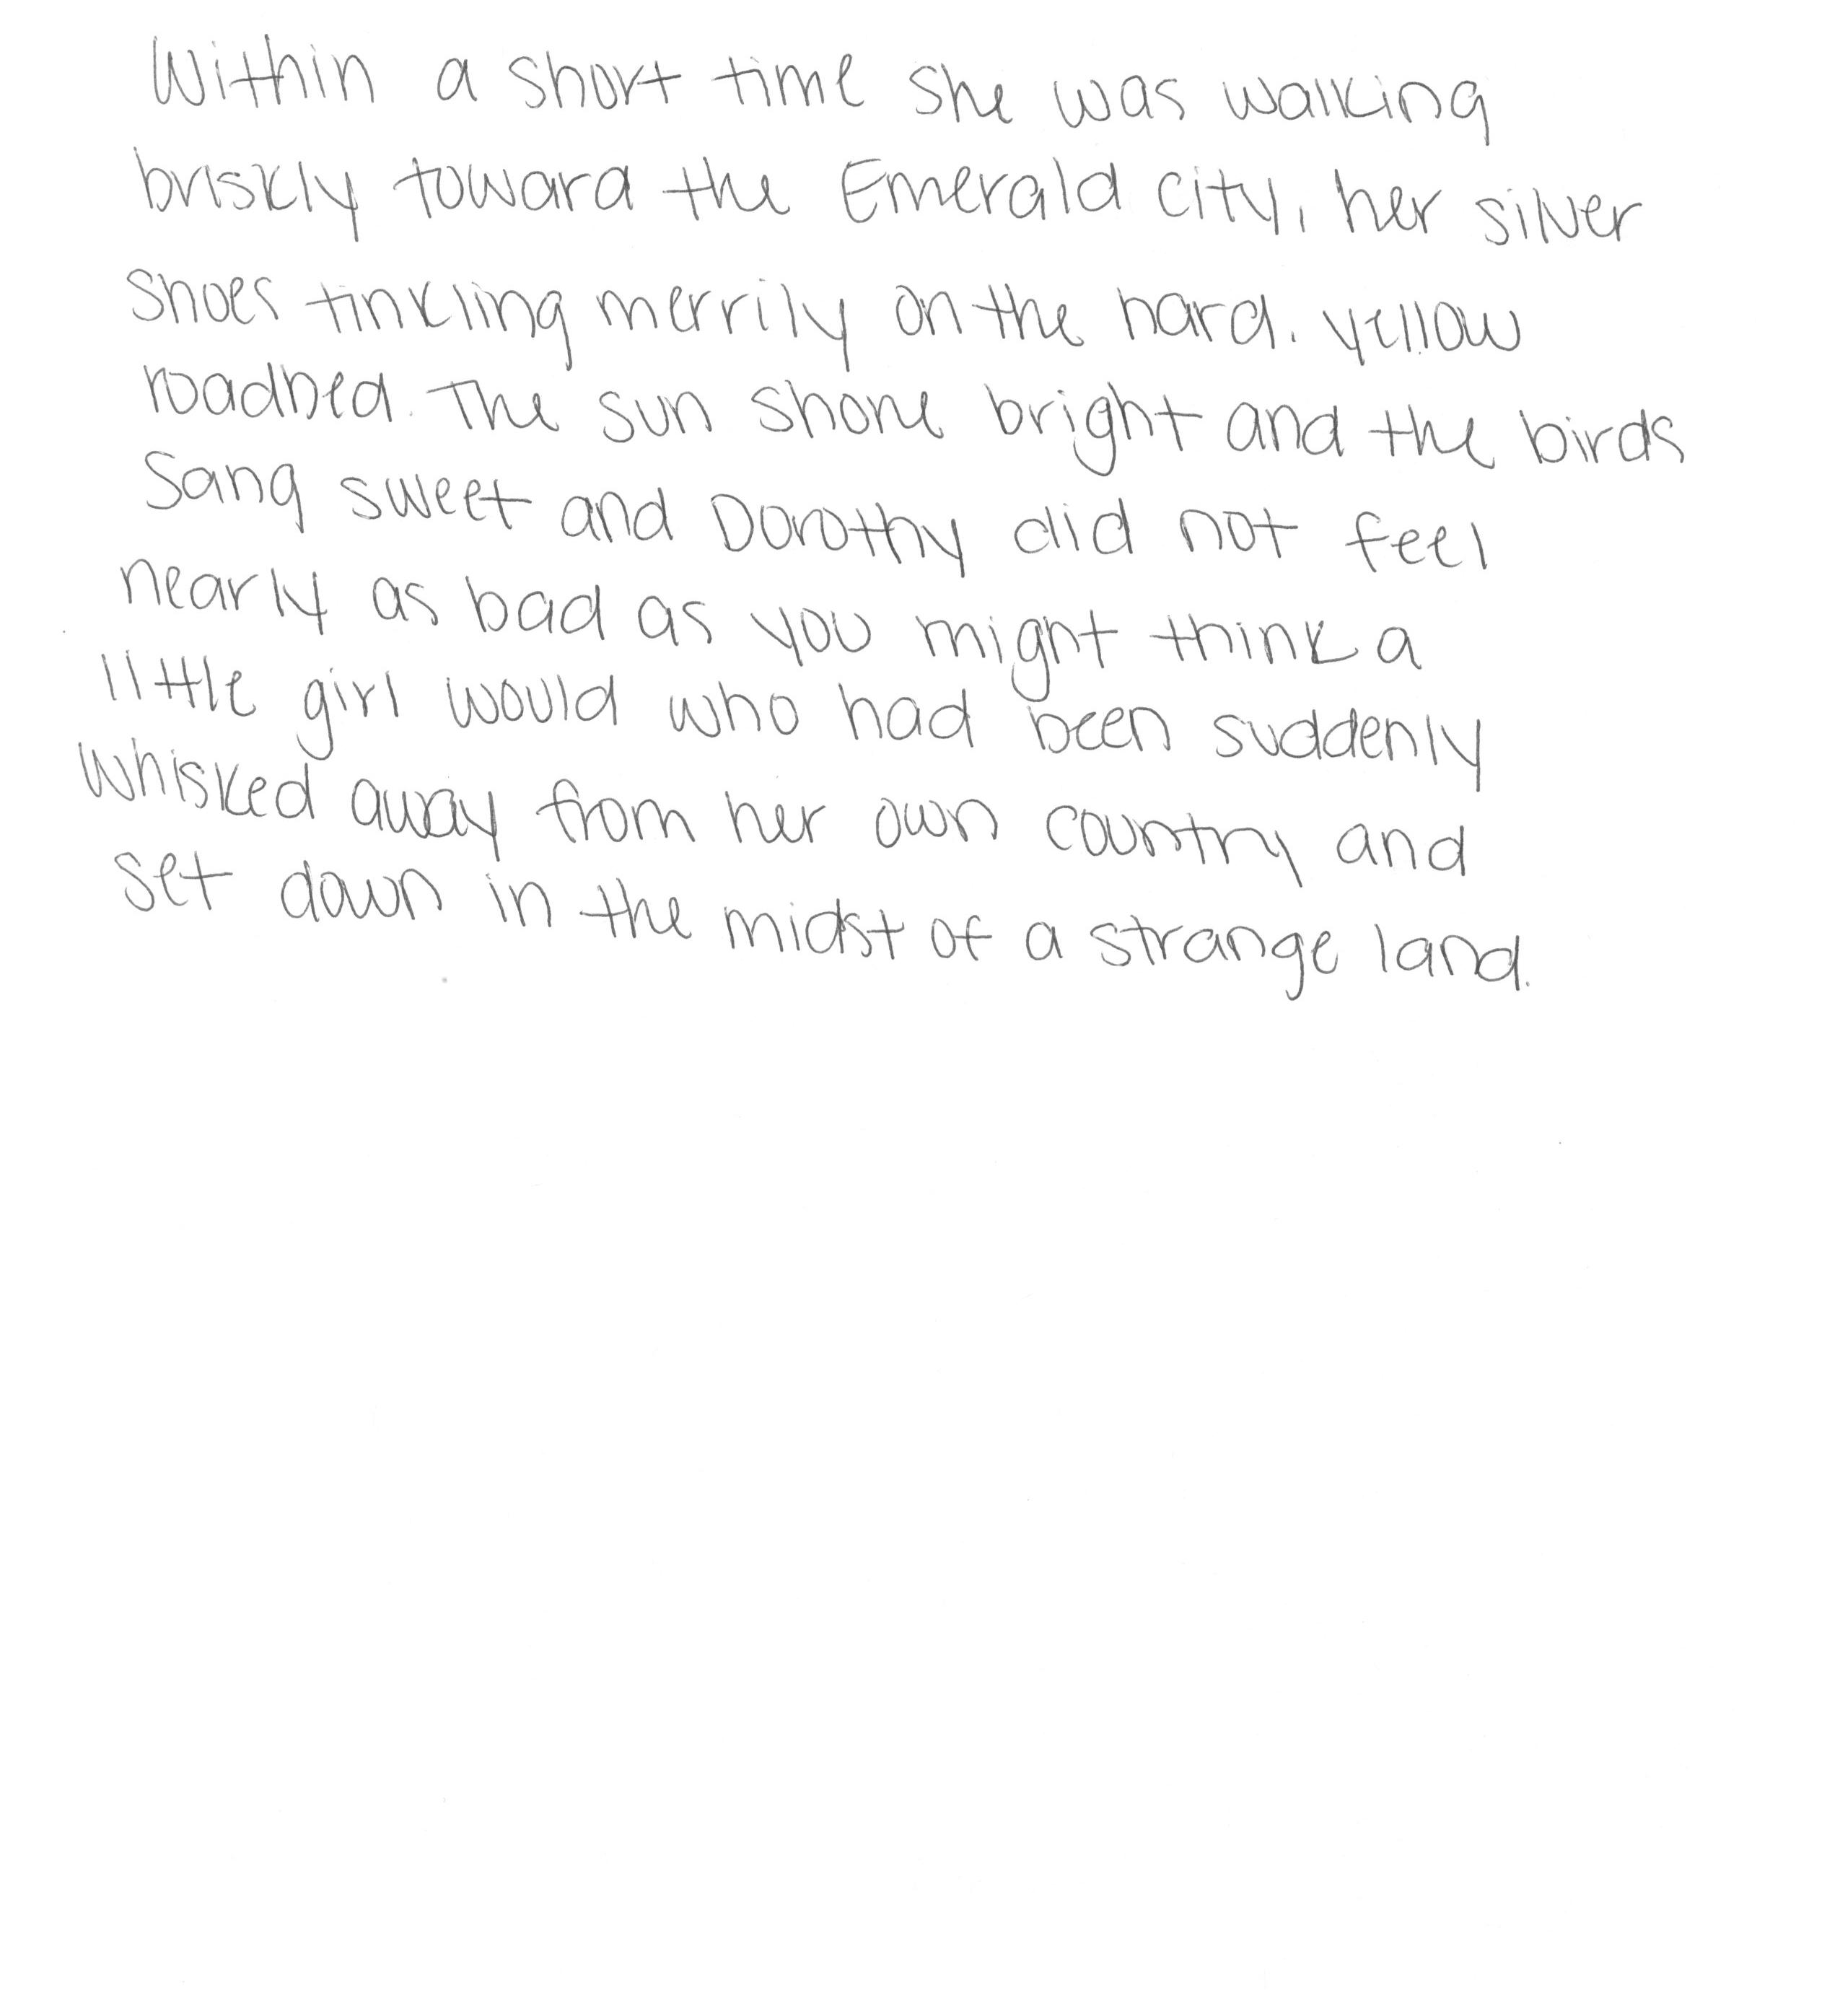 Within a short time she was walking
briskly toward the Emerald City, her silver
shoes tinkling merrily on the hard, yellow
roadbed. The sun shone bright and the birds
sang sweet and Dorothy did not feel
nearly as bad as you might think a
little girl would who had been suddenly
whisked away from her own country and
set down in the midst of a strange land.